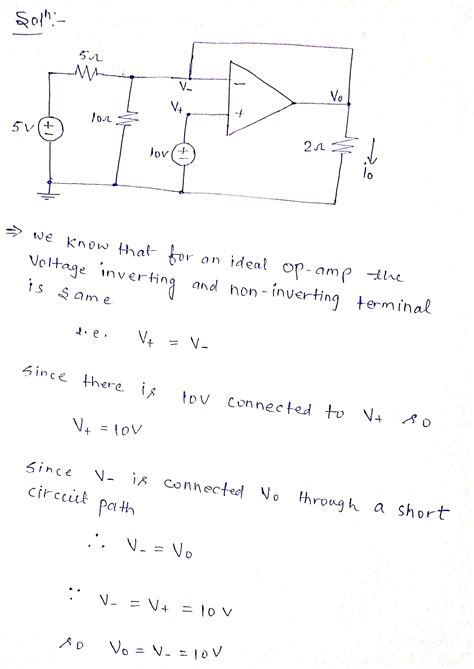 Solⁿ:-
5Ω
V-
V+
Vo
10Ω
5V
10V
2Ω
io
⇒ we know that for an ideal op-amp the
Voltage inverting and non-inverting terminal
is same
i.e. V+ = V-
since there is 10V connected to V+ so
V+ = 10V
since V- is connected Vo through a short
circuit path
∴ V- = Vo
∵ V- = V+ = 10V
so Vo = V- = 10V